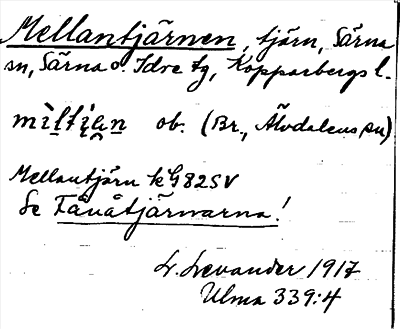 Mellantjärnen, tjärn, Särna
sn, Särna o. Idre tg, Kopparbergs l.
ob. (Br., Älvdalens sn)
Mellantjärn k G 82 SV
Se Fåvåtjärnarna!
L. Levander 1917
Ulma 339:4